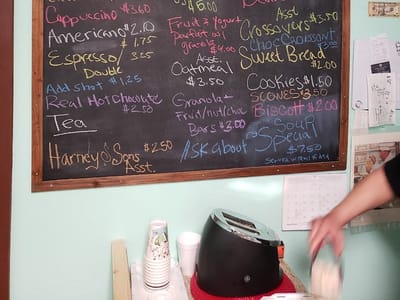 Cappuccino $3.60
Americano $2.10
Espresso $1.75
Double 3.25
Add shot $1.25
Real Hot Chocolate
$2.50
Tea
Harney & Sons $2.50
Asst.
$5.00
Fruit & Yogurt
Parfait w/
granola
$4.00
Asst.
Oatmeal
$3.50
Granola
Fruit/nut/choc
Bars $3.00
Ask about
Asst
Crossovers $3.50
Choc Croissant
Sweet Bread
$2.00
Cookies $1.50
SCONES $3.50
Biscotti $2.00
Soup
Special
$7.50